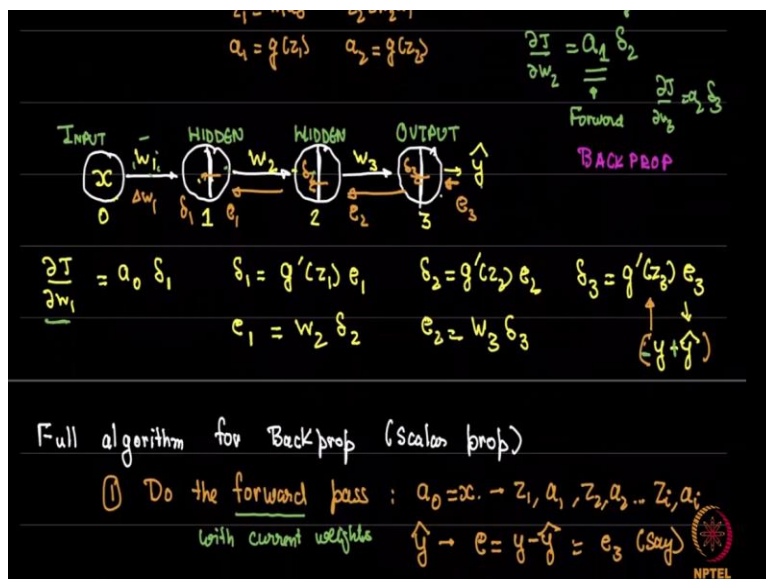 a₁ = g(z₁) a₂ = g(z₂)
∂J/∂w₂ = a₁ δ₂
Forward
∂J/∂w₃ = a₂ δ₃
BACKPROP
INPUT HIDDEN HIDDEN OUTPUT
x w₁ w₂ δ₂ w₃ δ₃ ŷ
Δw₁ δ₁ e₁ e₂ e₃
0 1 2 3
∂J/∂w₁ = a₀ δ₁ δ₁ = g'(z₁) e₁ δ₂ = g'(z₂) e₂ δ₃ = g'(z₃) e₃
e₁ = w₂ δ₂ e₂ = w₃ δ₃ (-y + ŷ)
Full algorithm for Backprop (Scalar prop)
① Do the forward pass : a₀ = x. → z₁, a₁, z₂, a₂ ... zᵢ, aᵢ
with current weights ŷ → e = y - ŷ = e₃ (say)
NPTEL